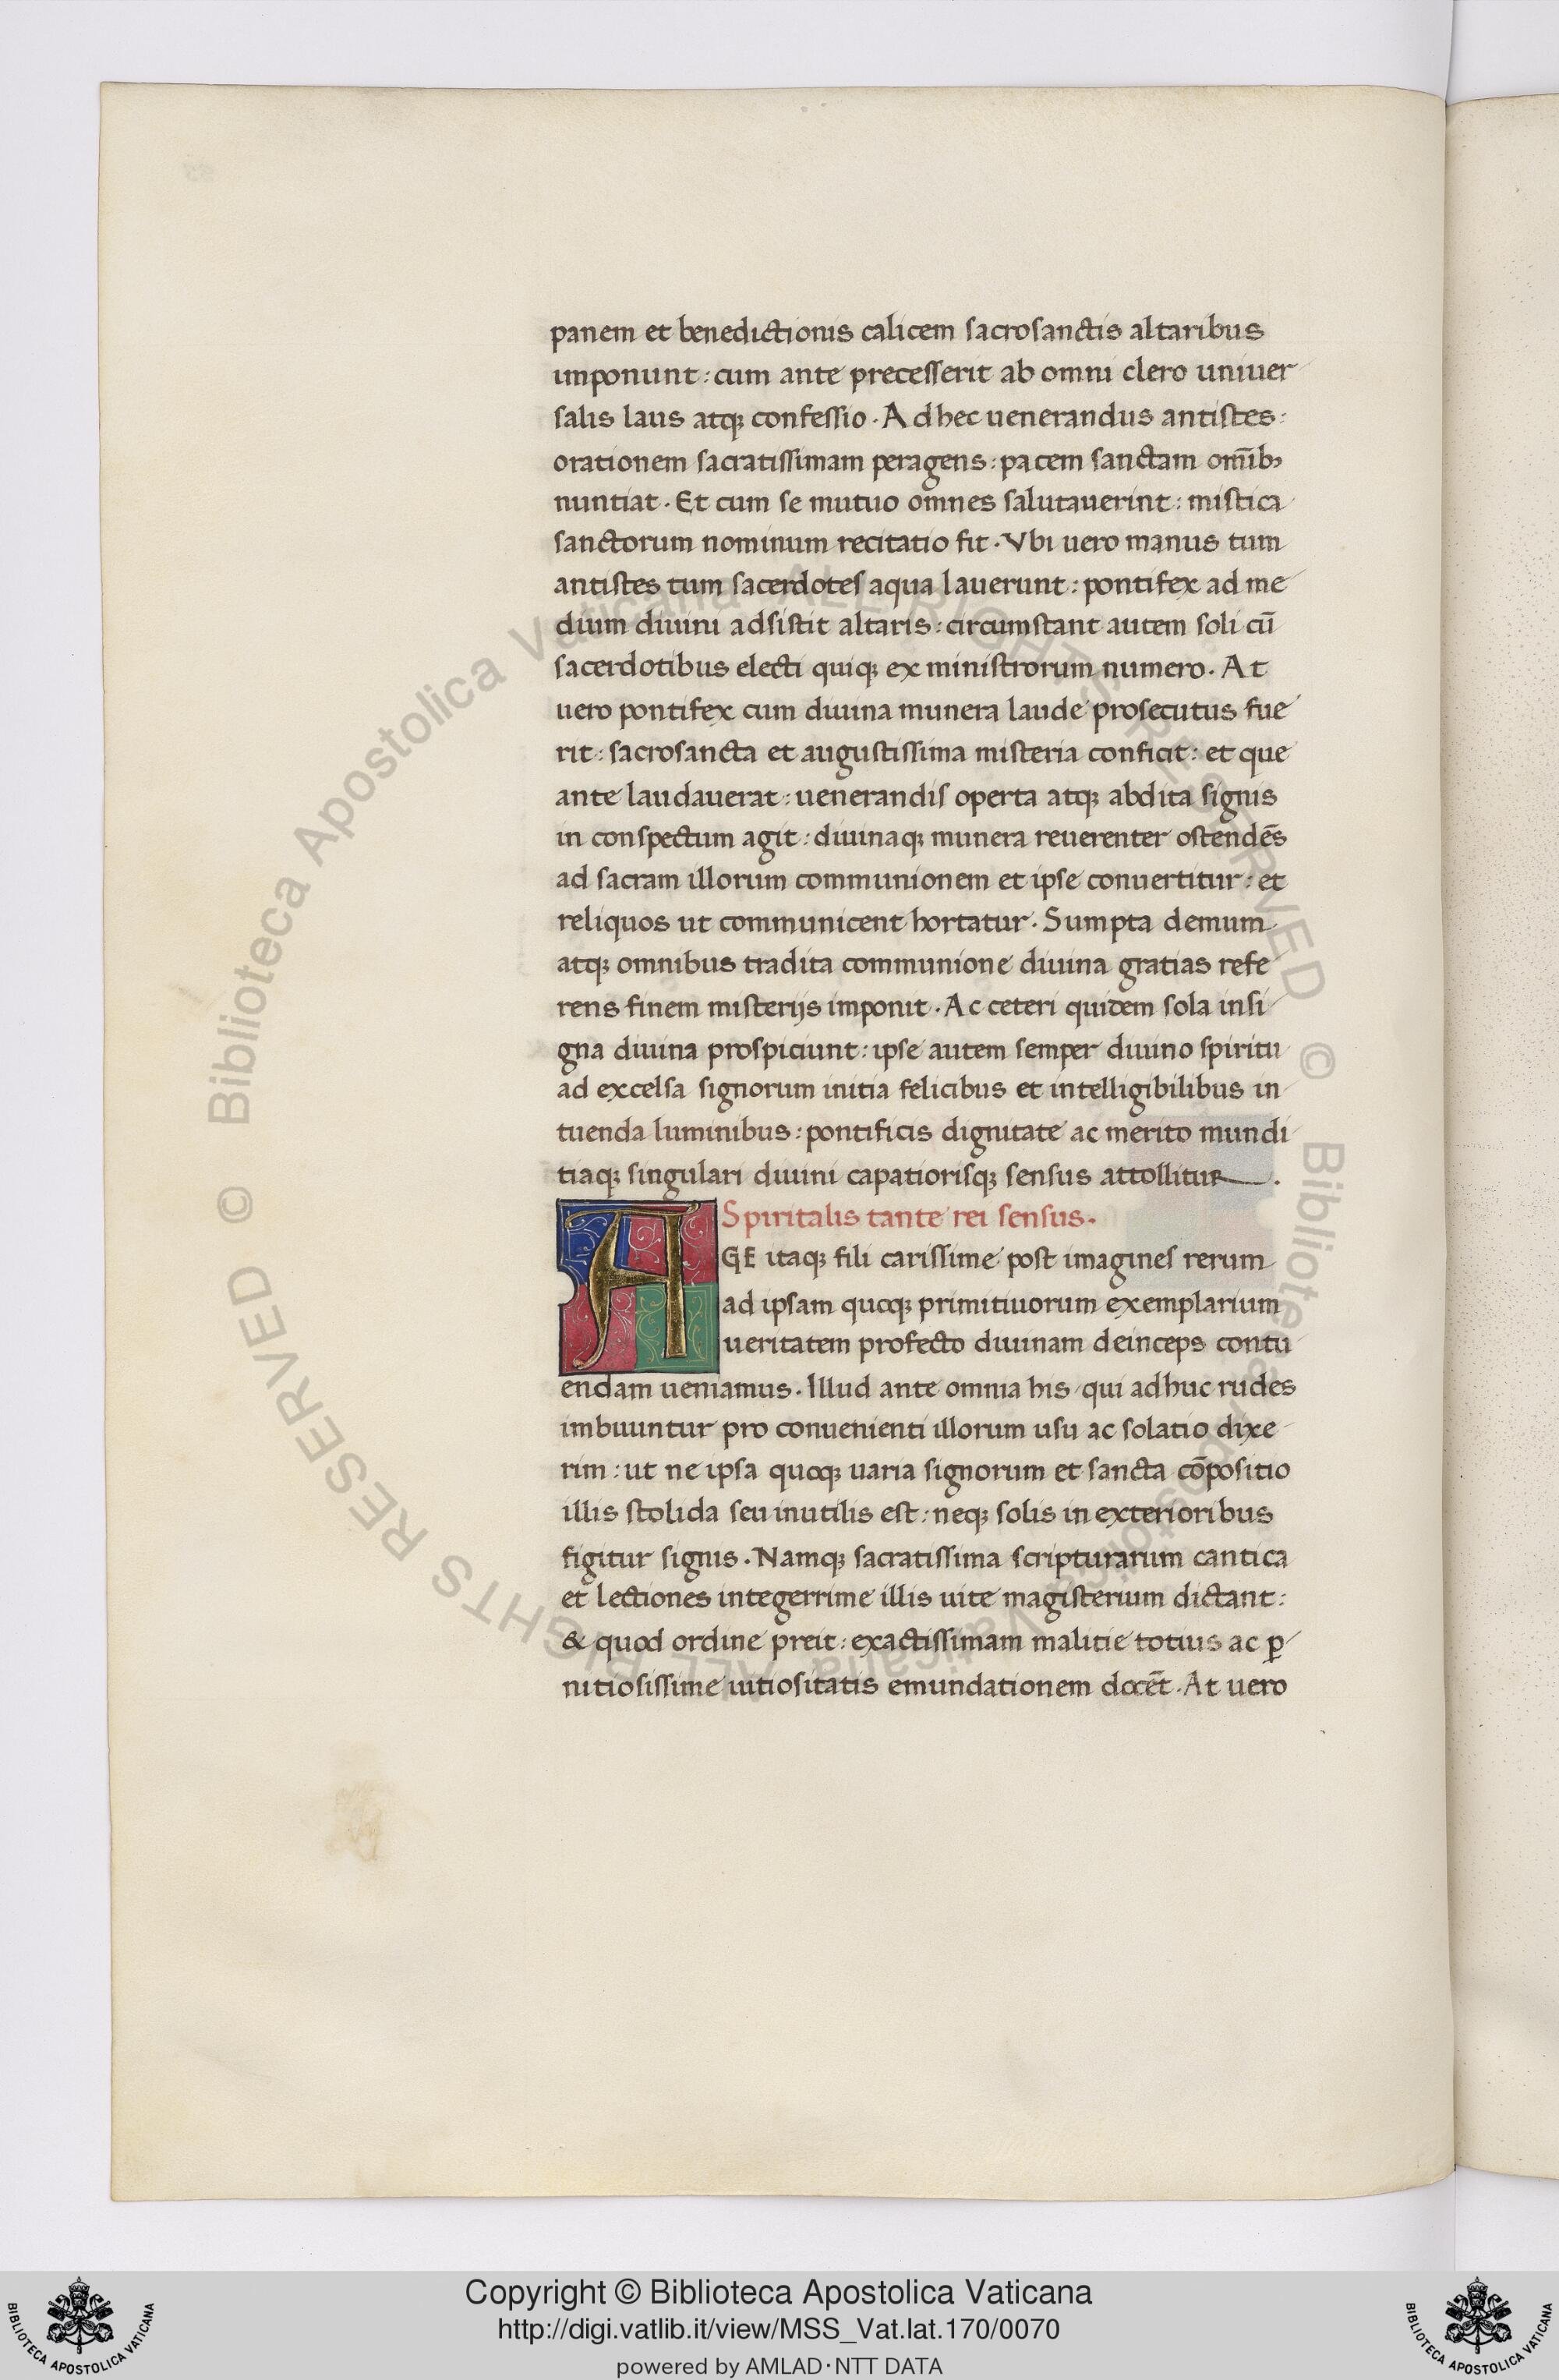 panem et benedictionis calicem sacrosanctis altaribus
imponunt : cum ante precesserit ab omni clero uniuer
salis laus atqꝫ confessio . Ad hec uenerandus antistes :
orationem sacratissimam peragens : pacem sanctam om̄ibꝫ
nuntiat . Et cum se mutuo omnes salutauerint : mistica
sanctorum nominum recitatio fit . Vbi uero manus tum
antistes tum sacerdotes aqua lauerunt : pontifex ad me
dium diuini adsistit altaris : circumstant autem soli cū
sacerdotibus electi quiqꝫ ex ministrorum numero . At
uero pontifex cum diuina munera laude prosecutus fue
rit : sacrosancta et augustissima misteria conficit : et que
ante laudauerat : uenerandis operta atqꝫ abdita signis
in conspectum agit : diuinaqꝫ munera reuerenter ostendēs
ad sacram illorum communionem et ipse conuertitur : et
reliquos ut communicent hortatur . Sumpta demum
atqꝫ omnibus tradita communione diuina gratias refe
rens finem misterijs imponit . Ac ceteri quidem sola insi
gna diuina prospiciunt : ipse autem semper diuino spiritu
ad excelsa signorum initia felicibus et intelligibilibus in
tuenda luminibus : pontificis dignitate ac merito mundi
tiaqꝫ singulari diuini capatiorisqꝫ sensus attollitur .
Spiritalis tante rei sensus .
AGE itaqꝫ fili carissime post imagines rerum
ad ipsam quoqꝫ primitiuorum exemplarium
ueritatem profecto diuinam deinceps contu
endam ueniamus . Illud ante omnia his qui adhuc rudes
imbuuntur pro conuenienti illorum usu ac solatio dixe
rim : ut ne ipsa quoqꝫ uaria signorum et sancta cōpositio
illis stolida seu inutilis est : neqꝫ solis in exterioribus
figitur signis . Namqꝫ sacratissima scripturarum cantica
et lectiones integerrime illis uite magisterium dictant :
& quod ordine preit : exactissimam malitie totius ac ꝑ
nitiosissime uitiositatis emundationem docēt . At uero
Copyright © Biblioteca Apostolica Vaticana
http://digi.vatlib.it/view/MSS_Vat.lat.170/0070
powered by AMLAD · NTT DATA
BIBLIOTECA APOSTOLICA VATICANA
BIBLIOTECA APOSTOLICA VATICANA
© Biblioteca Apostolica Vaticana ALL RIGHTS RESERVED
© Biblioteca Apostolica Vaticana ALL RIGHTS RESERVED